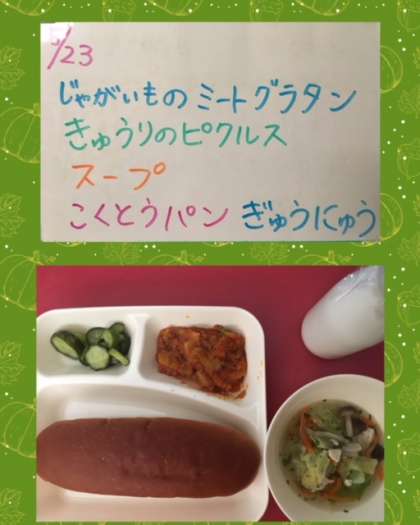 /23
じゃがいものミートグラタン
きゅうりのピクルス
スープ
こくとうパン ぎゅうにゅう